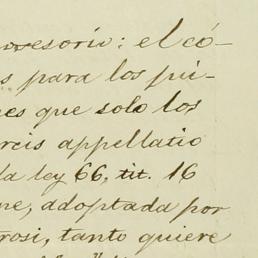 ovesorio: el có-
s para los pú-
es que solo los
rcis appellatio
la ley 66, tit. 16
ne, adoptada por
rosi, tanto quiere